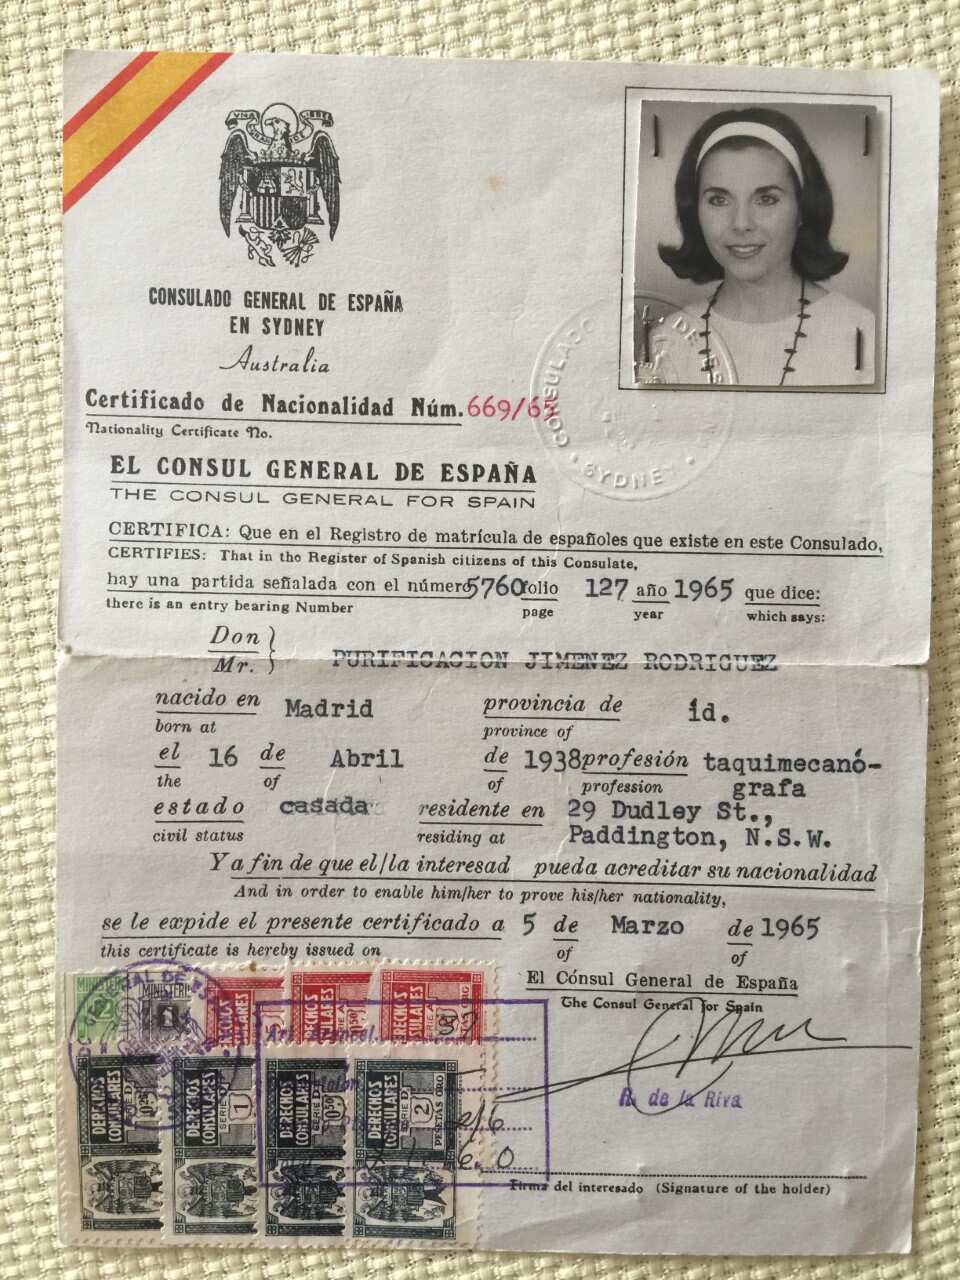 VNA GRANDE LIBRE
CONSULADO GENERAL DE ESPAÑA
EN SYDNEY
Australia
CONSULADO DE SYDNEY
Certificado de Nacionalidad Núm. 669/65
Nationality Certificate No.
EL CONSUL GENERAL DE ESPAÑA
THE CONSUL GENERAL FOR SPAIN
CERTIFICA: Que en el Registro de matrícula de españoles que existe en este Consulado,
CERTIFIES: That in the Register of Spanish citizens of this Consulate,
hay una partida señalada con el número 5760 folio 127 año 1965 que dice:
there is an entry bearing Number page year which says:
Don
Mr. } PURIFICACION JIMENEZ RODRIGUEZ
nacido en Madrid provincia de id.
born at province of
el 16 de Abril de 1938 profesión taquimecanó-
the of of profession grafa
estado casada residente en 29 Dudley St.,
civil status residing at Paddington, N.S.W.
Y a fin de que el/la interesad pueda acreditar su nacionalidad
And in order to enable him/her to prove his/her nationality,
se le expide el presente certificado a 5 de Marzo de 1965
this certificate is hereby issued on of of
El Cónsul General de España
The Consul General for Spain
R. de la Riva
Firma del interesado (Signature of the holder)
MINISTERIO
2
MINISTERIO
DERECHOS
CONSULARES
SERIE A
DERECHOS
CONSULARES
SERIE A
Art. Arancel
DERECHOS
CONSULARES
SERIE D
DERECHOS
CONSULARES
SERIE D
1
DERECHOS
CONSULARES
SERIE D
0,50
DERECHOS
CONSULARES
SERIE D
2
PESETAS ORO